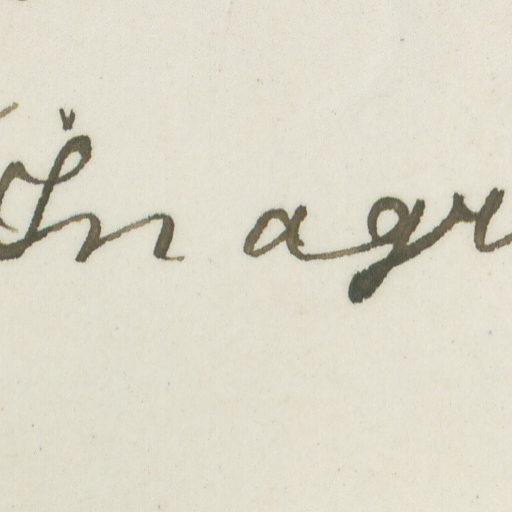 In agr